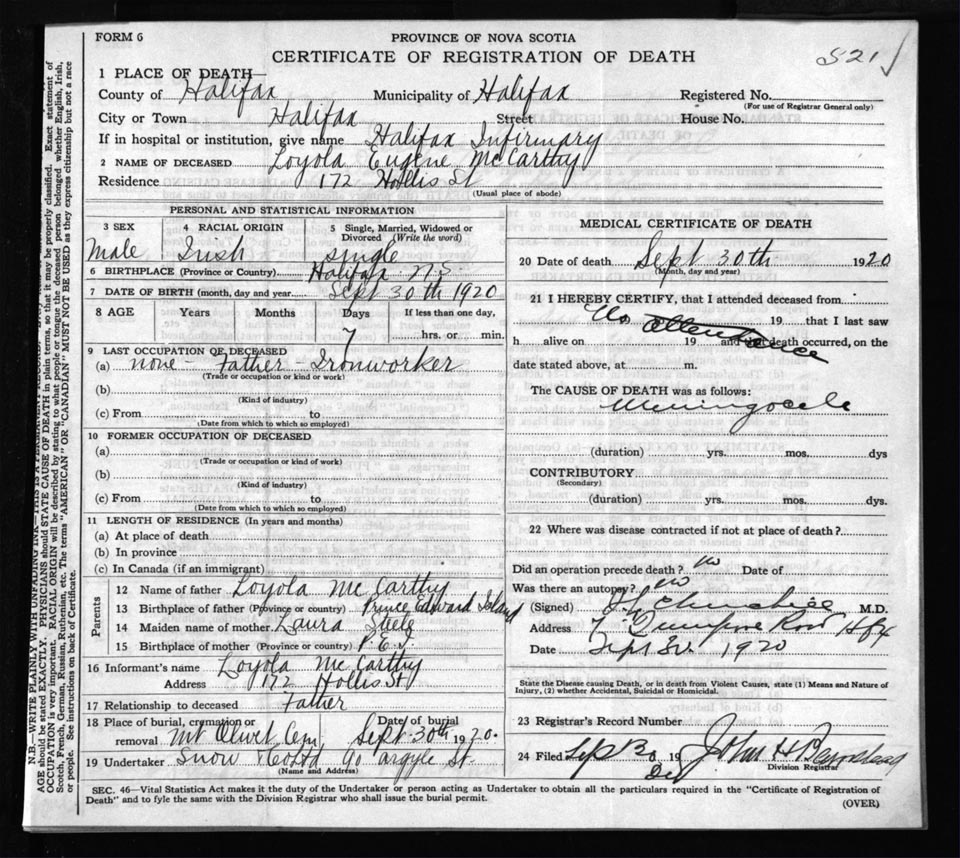 FORM 6
PROVINCE OF NOVA SCOTIA
CERTIFICATE OF REGISTRATION OF DEATH
521
1 PLACE OF DEATH—
County of Halifax Municipality of Halifax Registered No.
(For use of Registrar General only)
City or Town Halifax Street House No.
If in hospital or institution, give name Halifax Infirmary
2 NAME OF DECEASED Loyola Eugene McCarthy
Residence 172 Hollis St
(Usual place of abode)
PERSONAL AND STATISTICAL INFORMATION
3 SEX 4 RACIAL ORIGIN 5 Single, Married, Widowed or Divorced (Write the word)
Male Irish Single
6 BIRTHPLACE (Province or Country) Halifax N.S.
7 DATE OF BIRTH (month, day and year) Sept 30th 1920
8 AGE Years Months Days If less than one day,
7 hrs. or min.
9 LAST OCCUPATION OF DECEASED
(a) none - Father - Ironworker
(Trade or occupation or kind or work)
(b)
(Kind of industry)
(c) From to
(Date from which to which so employed)
10 FORMER OCCUPATION OF DECEASED
(a)
(Trade or occupation or kind of work)
(b)
(Kind of industry)
(c) From to
(Date from which to which so employed)
11 LENGTH OF RESIDENCE (In years and months)
(a) At place of death
(b) In province
(c) In Canada (if an immigrant)
Parents
12 Name of father Loyola McCarthy
13 Birthplace of father (Province or country) Prince Edward Island
14 Maiden name of mother Laura Steele
15 Birthplace of mother (Province or country) P.E.I.
16 Informant's name Loyola McCarthy
Address 172 Hollis St
17 Relationship to deceased Father
18 Place of burial, cremation or removal Mt Olivet Cem Date of burial Sept 30th 1920.
19 Undertaker Snow & Co Ltd 90 Argyle St.
(Name and Address)
MEDICAL CERTIFICATE OF DEATH
20 Date of death Sept 30th 1920
(Month, day and year)
21 I HEREBY CERTIFY, that I attended deceased from
No attendance 19 that I last saw
h alive on 19 and death occurred, on the
date stated above, at m.
The CAUSE OF DEATH was as follows:
Meningocele
(duration) yrs. mos. dys
CONTRIBUTORY
(Secondary)
(duration) yrs. mos. dys.
22 Where was disease contracted if not at place of death?
Did an operation precede death? no Date of
Was there an autopsy? no
(Signed) M.D.
Address Hfx
Date Sept 30. 1920
State the Disease causing Death, or in death from Violent Causes, state (1) Means and Nature of Injury, (2) whether Accidental, Suicidal or Homicidal.
23 Registrar's Record Number
24 Filed Sept 30 19 John H
Division Registrar
Dep
SEC. 46—Vital Statistics Act makes it the duty of the Undertaker or person acting as Undertaker to obtain all the particulars required in the "Certificate of Registration of
Death" and to fyle the same with the Division Registrar who shall issue the burial permit.
(OVER)
N.B.—WRITE PLAINLY WITH UNFADING INK—THIS IS A PERMANENT RECORD.
AGE should be stated EXACTLY. PHYSICIANS should STATE CAUSE OF DEATH in plain terms, so that it may be properly classified. Exact statement of
OCCUPATION is very important. RACIAL ORIGIN will be described by stating to what people or tongue the deceased person belonged whether English, Irish,
Scotch, French, German, Russian, Ruthenian, etc. The terms "AMERICAN" OR "CANADIAN" MUST NOT BE USED as they express citizenship but not a race
or people. See instructions on back of Certificate.